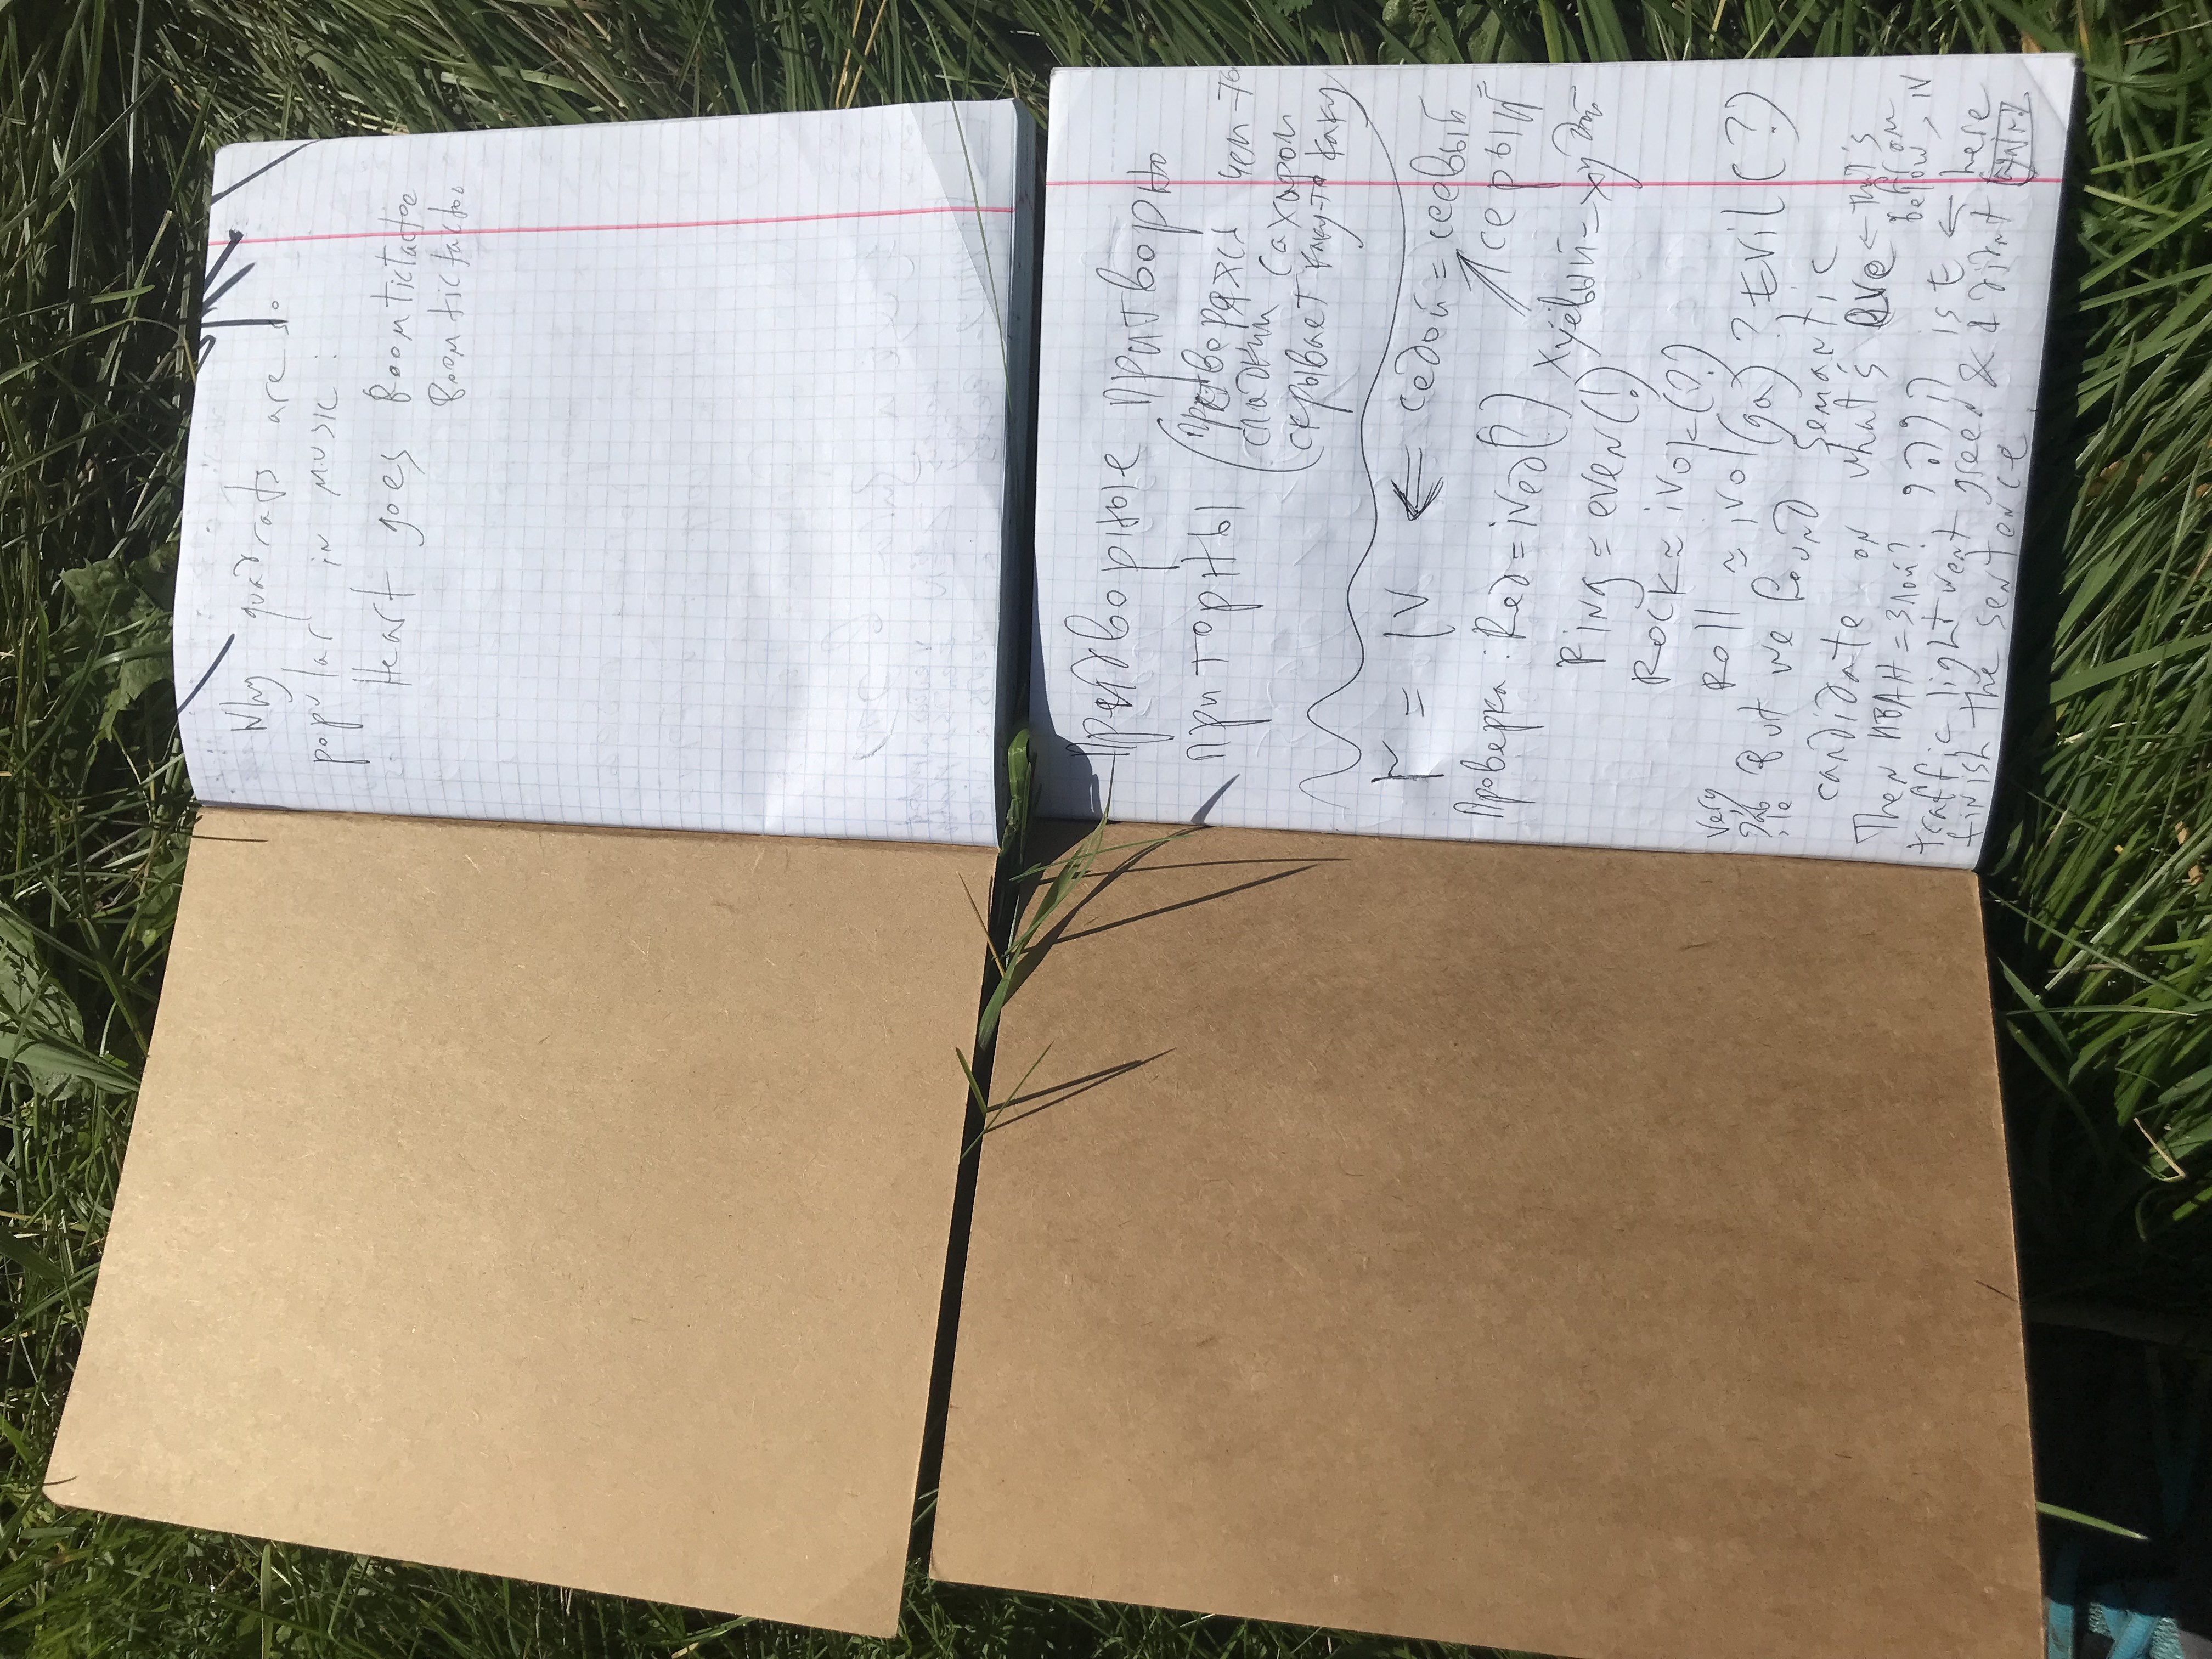 Why quadrats are so
popular in music:
Heart goes Boomtictactoe
Boomtictactoo
Придворные притворно
приторны (притворяясь чем-то
сладким сахаром
скрывает каку-то каку)
r = IV ← седой = сеевый
серый
Проверка: Red = ived(?)
хуёвый – худой
Ring = even(!)
Rock ≈ ivok(?)
Roll ≈ ivol(ga)? Evil(?)
very
But we found semantic
candidate on what's eve ← that's
from
below, IV
Then ИВАН = злой?
is E ← here
traffic light went green & I didnt
finish the sentence